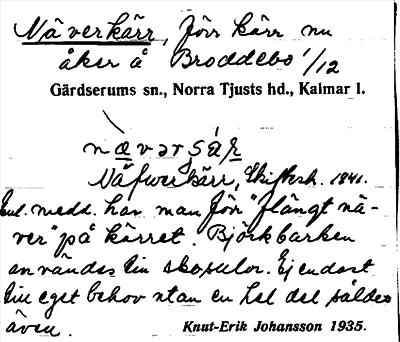 Näverkärr, förr kärr nu
åker å Broddebo 1/12
Gärdserums sn., Norra Tjusts hd., Kalmar l.
Näfwerkärr, Skiftesk. 1841.
Enl. medd. har man förr "flängt nä-
ver" på kärret. Björkbarken
användes till skosulor. Ej endast
till eget behov utan en hel del såldes
även.
Knut-Erik Johansson 1935.